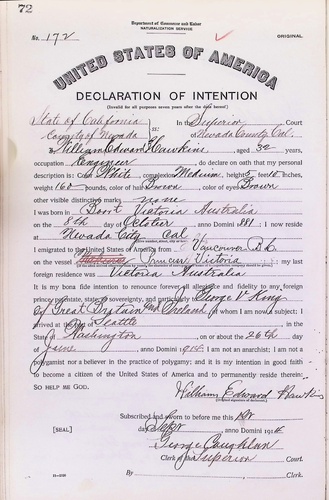 72
Department of Commerce and Labor
NATURALIZATION SERVICE
No. 172
ORIGINAL
UNITED STATES OF AMERICA
DECLARATION OF INTENTION
(Invalid for all purposes seven years after the date hereof)
State of California
County of Nevada
ss:
In the Superior Court
of Nevada County Cal.
I, William Edward Hawkins, aged 32 years,
occupation Engineer, do declare on oath that my personal
description is: Color White, complexion Medium, height 5 feet 10 inches,
weight 160 pounds, color of hair Brown, color of eyes Brown
other visible distinctive marks none
I was born in Victoria Australia
on the 8th day of October, anno Domini 1881; I now reside
at Nevada City Cal.
I emigrated to the United States of America from Vancouver B.C.
on the vessel Princess Victoria; my last
foreign residence was Victoria Australia
It is my bona fide intention to renounce forever all allegiance and fidelity to any foreign
prince, potentate, state, or sovereignty, and particularly to George V King
of Great Britain and Ireland, of whom I am now a subject; I
arrived at the port of Seattle, in the
State of Washington, on or about the 26th day
of June, anno Domini 1914; I am not an anarchist; I am not a
polygamist nor a believer in the practice of polygamy; and it is my intention in good faith
to become a citizen of the United States of America and to permanently reside therein:
SO HELP ME GOD.
William Edward Hawkins
(Original signature of declarant.)
Subscribed and sworn to before me this
[SEAL]
day of Sept, anno Domini 191
George Coughlan
Clerk of the Superior Court.
By, Clerk.